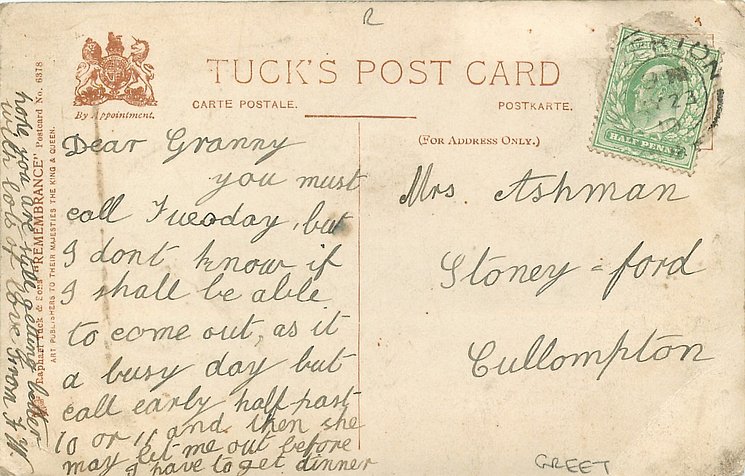 R
TUCK'S POST CARD
By Appointment.
CARTE POSTALE.
POSTKARTE.
(FOR ADDRESS ONLY.)
HALF PENNY
Dear Granny
you must
call Tuesday, but
I dont know if
I shall be able
to come out, as it
a busy day but
call early half past
10 or 11 and then she
may let me out before
I have to get dinner
hope you are still getting better
with lots of love from
Mrs. Ashman
Stoney-ford
Cullompton
GREET
Raphael Tuck & Sons "REMEMBRANCE" Postcard No. 6318
ART PUBLISHERS TO THEIR MAJESTIES THE KING & QUEEN.